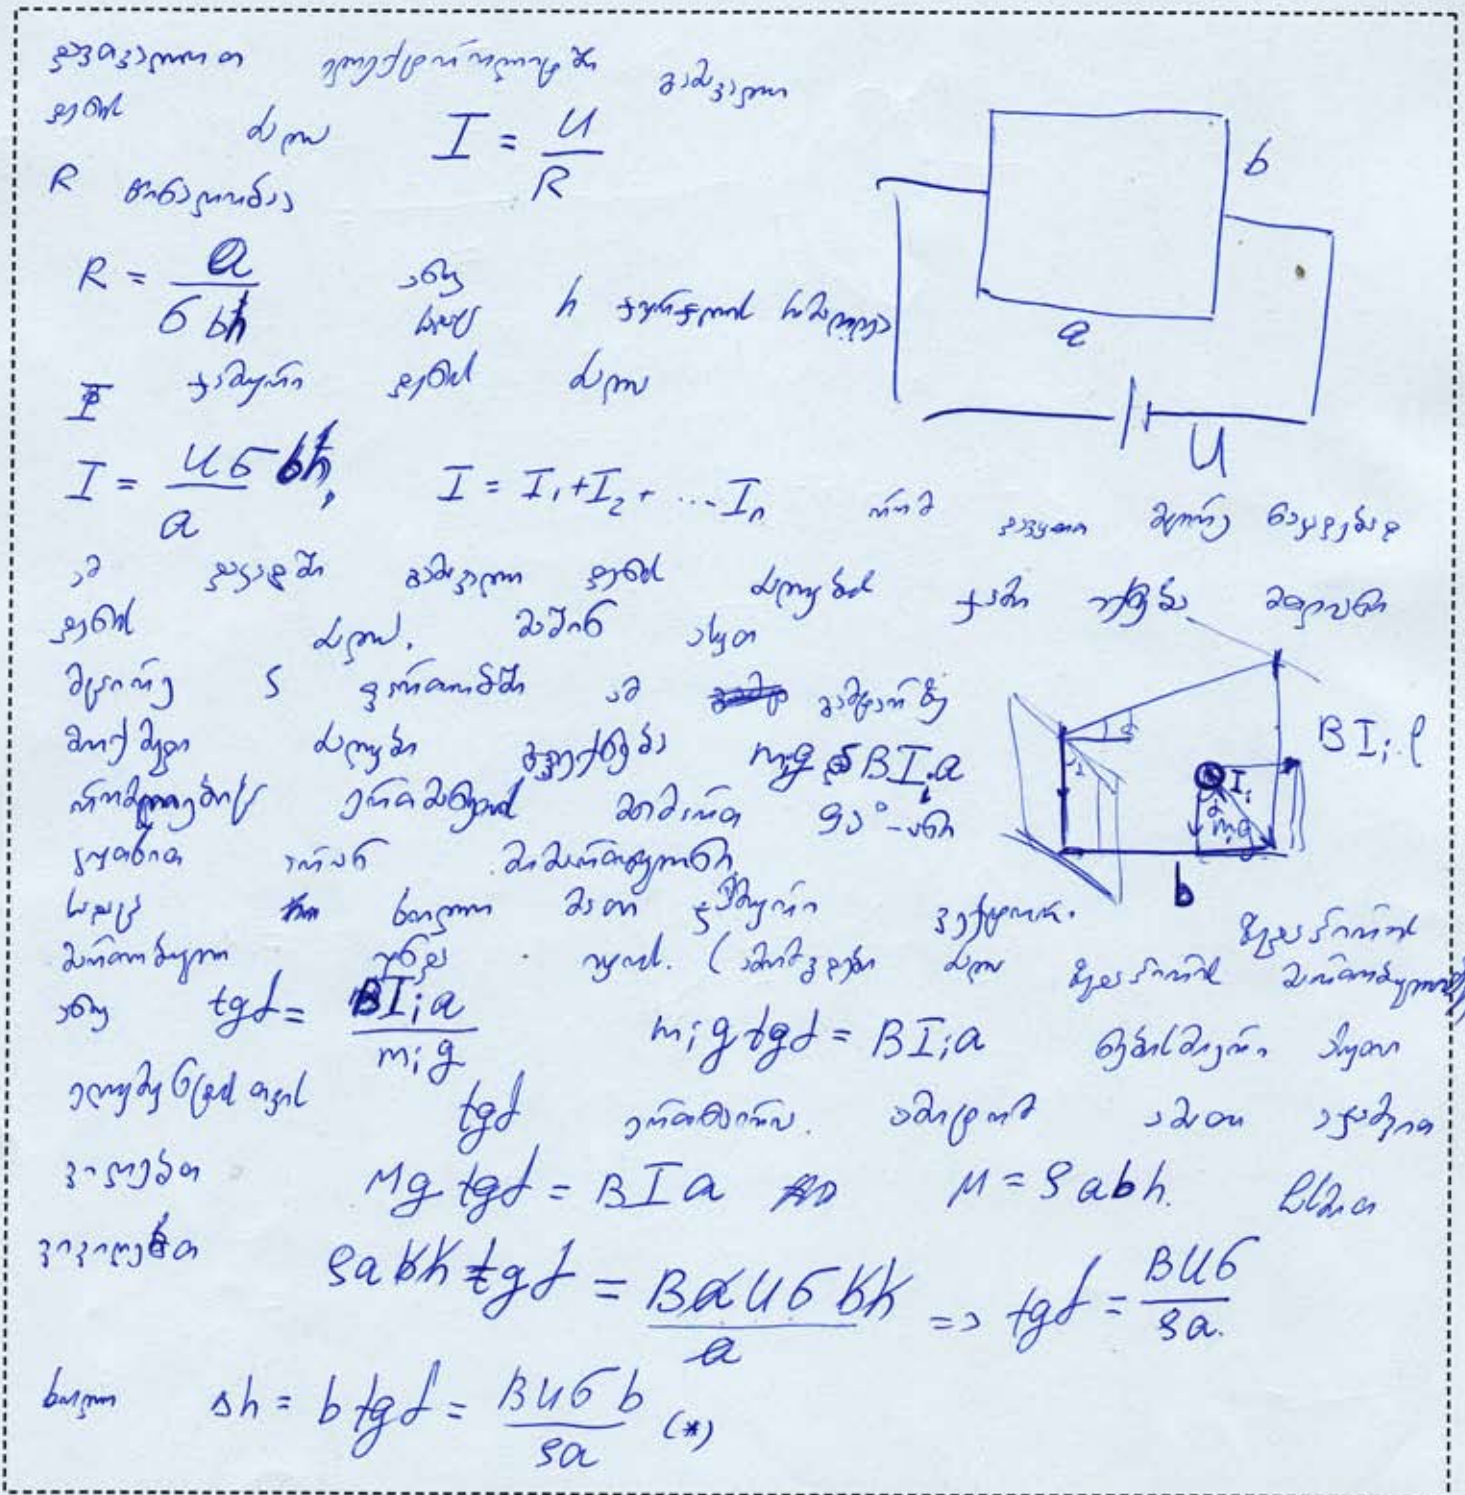 დავთვალოთ ელექტროლიტში გამავალი
დენის ძალა I = U/R
R წინაღობაა
R = a/(σbh) ანუ სადაც h ჭურჭლის სიმაღლეა
b
a
U
I ჯამური დენის ძალა
I = Uσbh/a, I = I₁+I₂+ ...Iₙ რომ დავყოთ მცირე ნაკადებად
ამ გამავალი დენის ძალების ჯამი იქნება მთლიანი
დენის ძალა. მაშინ ასეთ
მცირე S ფართობში ამ გამტარზე
მოქმედი ძალები გვექნება mᵢg BIᵢa
რომლებიც ერთმანეთის მიმართ 90°-იანი
კუთხით არიან მიმართულნი
BIᵢl
Iᵢ
α
mᵢg
b
სადაც ხოლო მათი ჯამური ვექტორი ზედაპირის
მართობული უნდა იყოს. (ამომგდები ძალა ზედაპირის მართობულია)
ანუ tgα = BIᵢa/(mᵢg) mᵢg tgα = BIᵢa ნებისმიერი ასეთი
ელემენტისთვის tgα ერთნაირია. ამიტომ ამათი აჯამვით
ვიღებთ Mg tgα = BIa M = ρabh. ჩასმით
ვიღებთ ρabh tgα = BaUσbh/a => tgα = BUσ/(ρa)
ხოლო Δh = b tgα = BUσb/(ρa) (*)